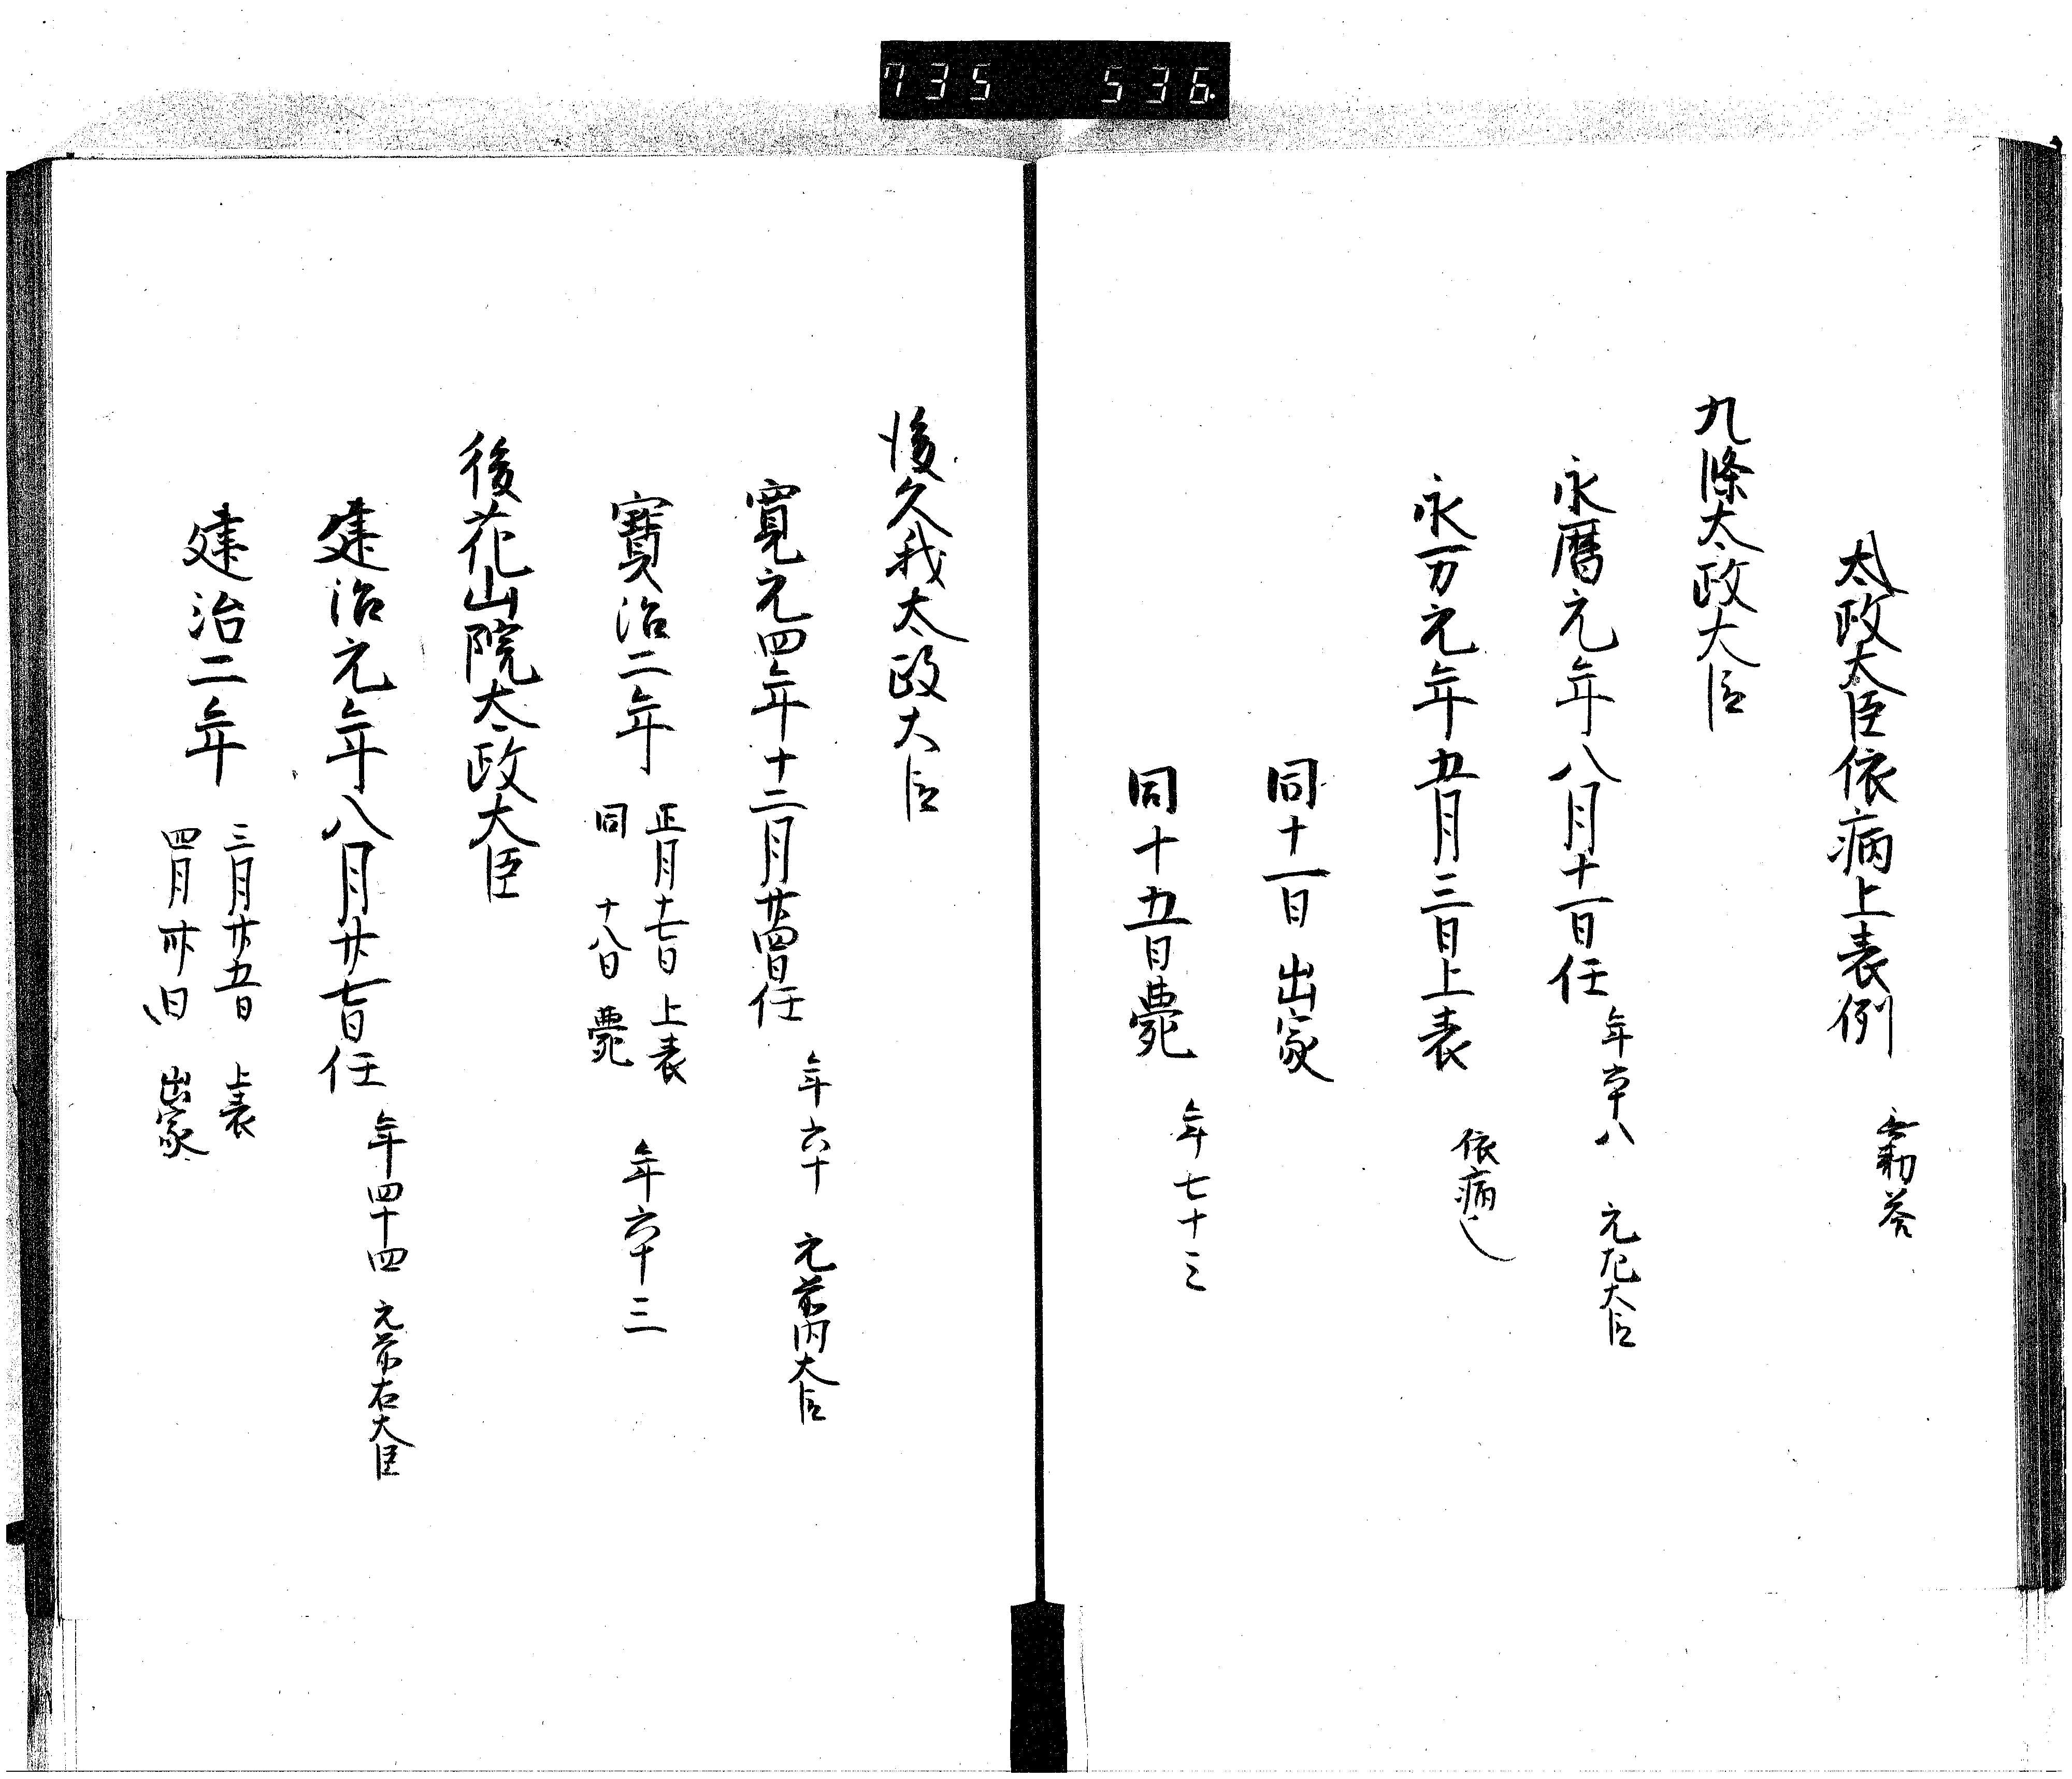 735 536
太政大臣依病上表例 無勅答
九條太政大臣
永暦元年八月十一日任 年六十八 元左大臣
永万元年五月三日上表 依病也
同十一日 出家
同十五日薨 年七十三
後久我太政大臣
寛元四年十二月廿四日任 年六十 元前内大臣
寳治二年 正月十七日 上表
同 十八日 薨 年六十三
後花山院太政大臣
建治元年八月廿七日任 年四十四 元前右大臣
建治二年 三月廿五日 上表
四月 出家